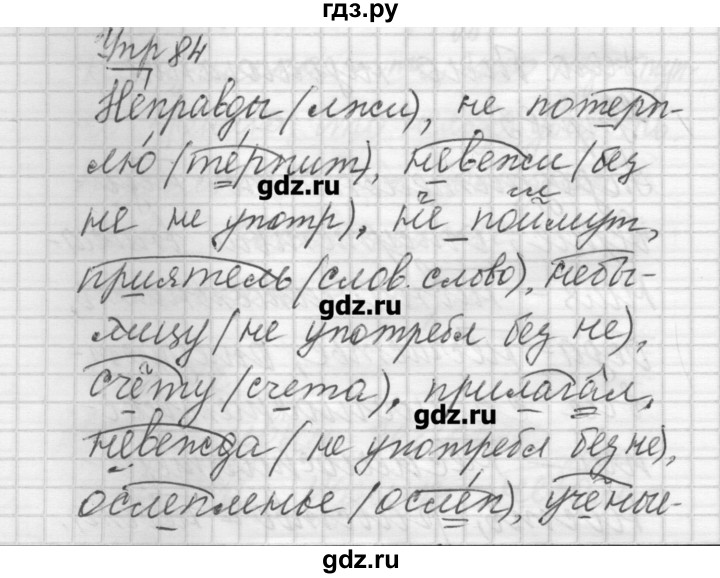 гдз.ру
Упр 84
Неправды (лжи), не потерп-
лю (терпит), невежи (без
gdz.ru
не не употр), не поймут,
приятель (слов. слово), небы-
gdz.ru
лицу (не употребл без не),
счёту (счета), прилагал,
gdz.ru
невежда (не употребл без не),
ослепленье (ослеп), учёные-
gdz.ru